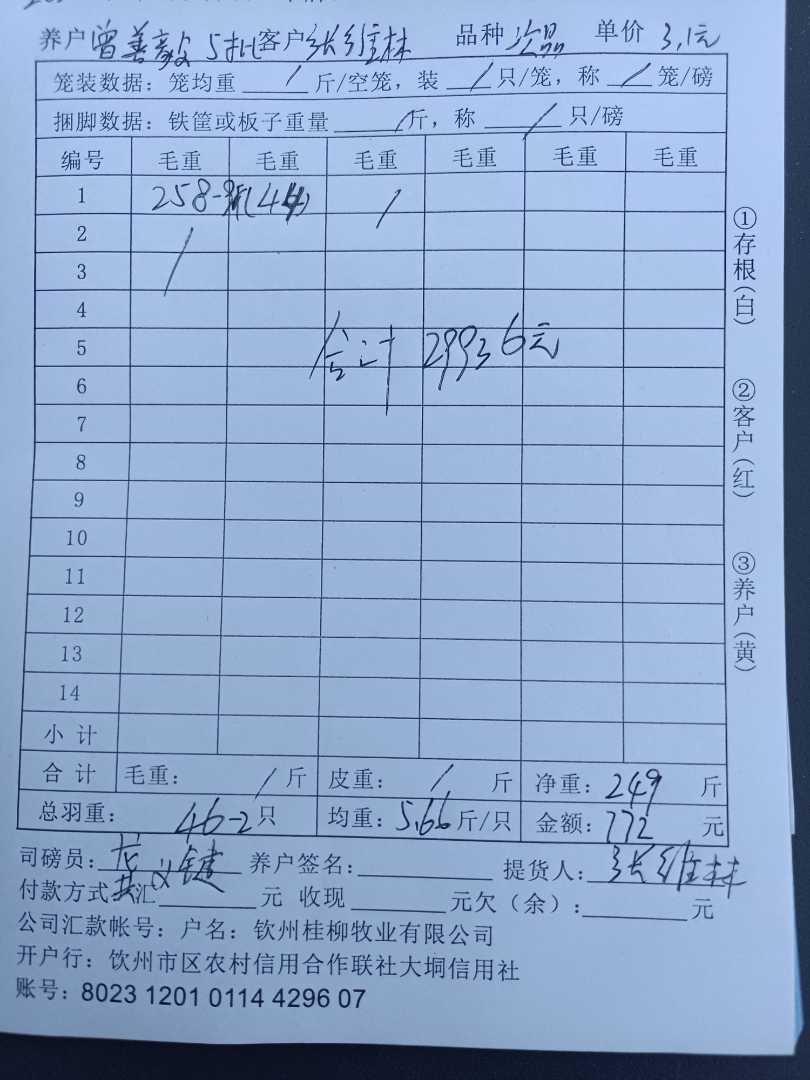 养户 曾善毅 5批 客户 张维林 品种 次品 单价 3.1元
笼装数据：笼均重 / 斤/空笼，装 / 只/笼，称 / 笼/磅
捆脚数据：铁筐或板子重量 / 斤，称 / 只/磅
编号 毛重 毛重 毛重 毛重 毛重 毛重
1 258-9斤(44) /
2 /
3
4
5 合计 29936元
6
7
8
9
10
11
12
13
14
小计
合计 毛重： / 斤 皮重： / 斤 净重：249 斤
总羽重： 46-2只 均重：5.66斤/只 金额：772 元
司磅员： 养户签名： 提货人：张维林
付款方式：汇 元 收现 元欠（余）： 元
公司汇款帐号：户名：钦州桂柳牧业有限公司
开户行：饮州市区农村信用合作联社大垌信用社
账号：8023 1201 0114 4296 07
①存根（白）
②客户（红）
③养户（黄）